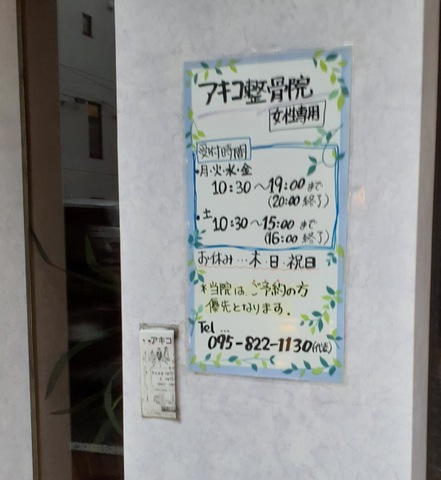 アキコ整骨院
女性専用
受付時間
・月・火・水・金
10:30～19:00まで
(20:00終了)
・土
10:30～15:00まで
(16:00終了)
お休み…木・日・祝日
*当院は、ご予約の方
優先となります。
Tel…
095-822-1130(代表)
アキコ